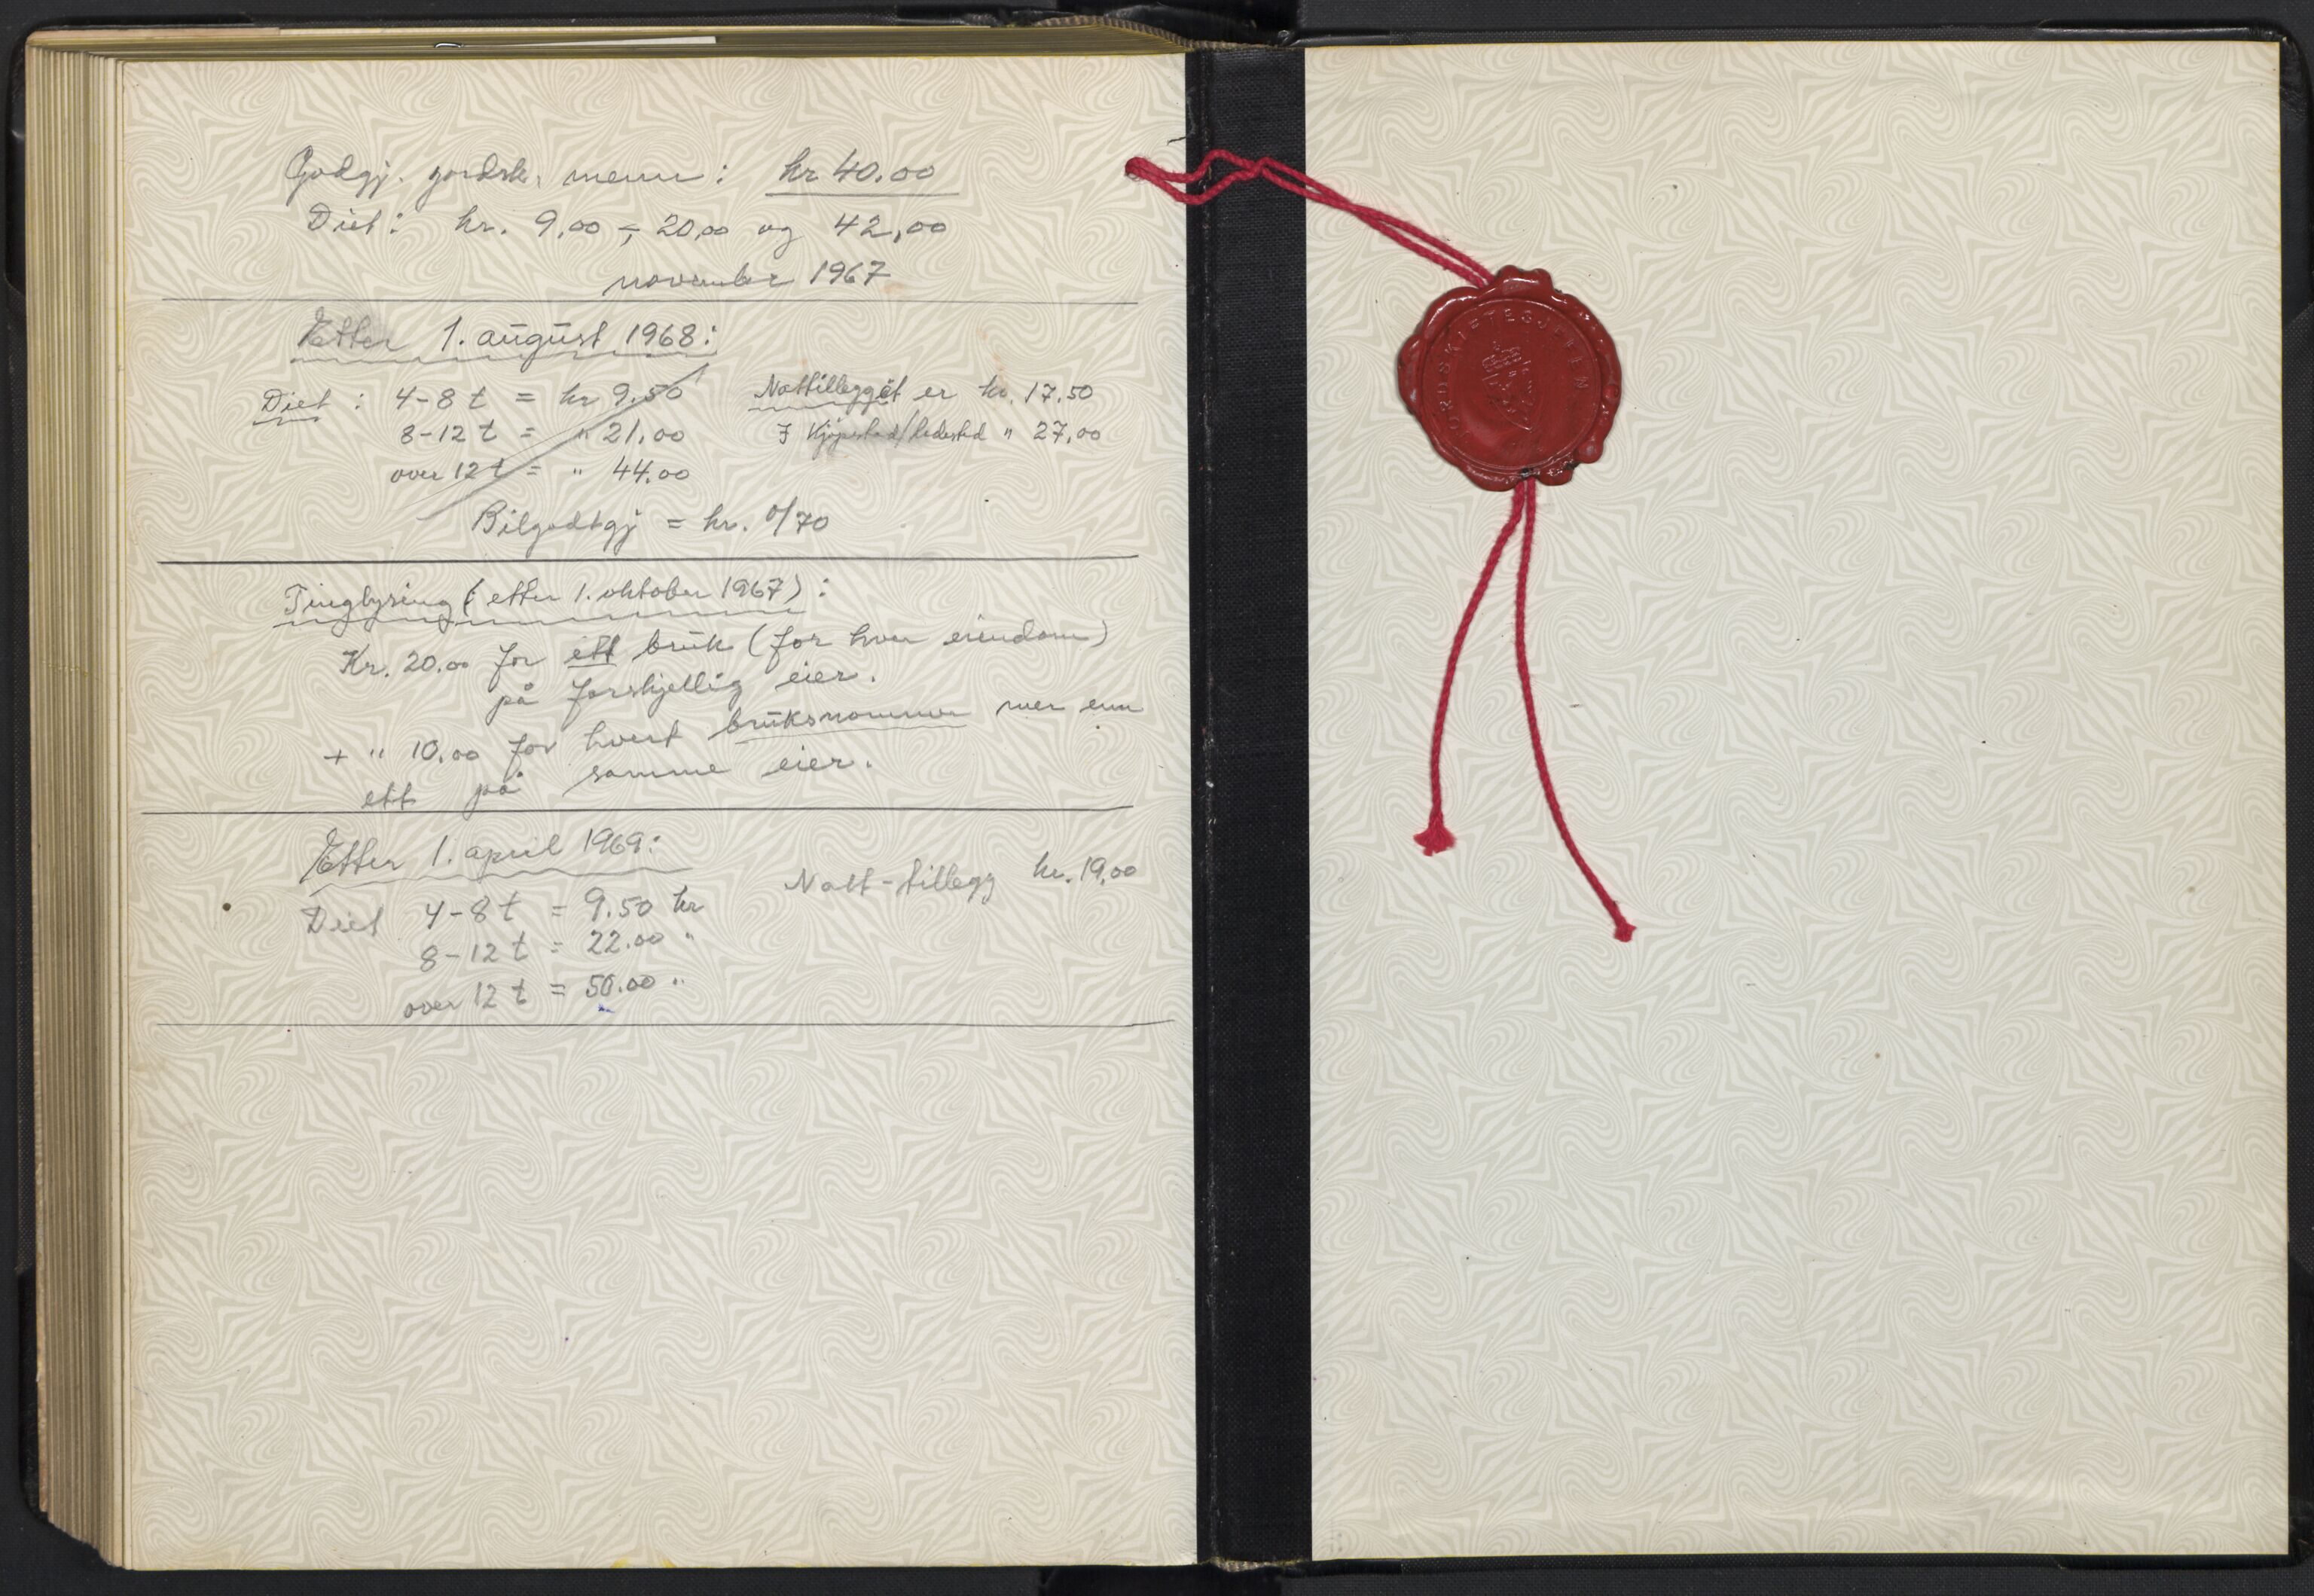 Godgj. jordsk. menn: kr 40.00
Diet: kr. 9,00 - 20,00 og 42,00
november 1967
Etter 1. august 1968:
Diet: 4-8 t = kr 9.50 Nattillegget er kr. 17.50
8-12 t = " 21,00 I Kjøpsted/ladested " 27,00
over 12 t = " 44.00
Bilgodtgj = kr. 0/70
Tinglysing (etter 1. oktober 1967):
Kr. 20.00 for ett bruk (for hver eiendom)
på forskjellig eier.
+ " 10,00 for hvert bruksnummer mer enn
ett på samme eier.
Etter 1. april 1969:
Natt-tillegg kr. 19,00
Diet 4-8 t = 9.50 kr
8-12 t = 22.00 "
over 12 t = 50.00 "
JORDSKIFTESJEFEN